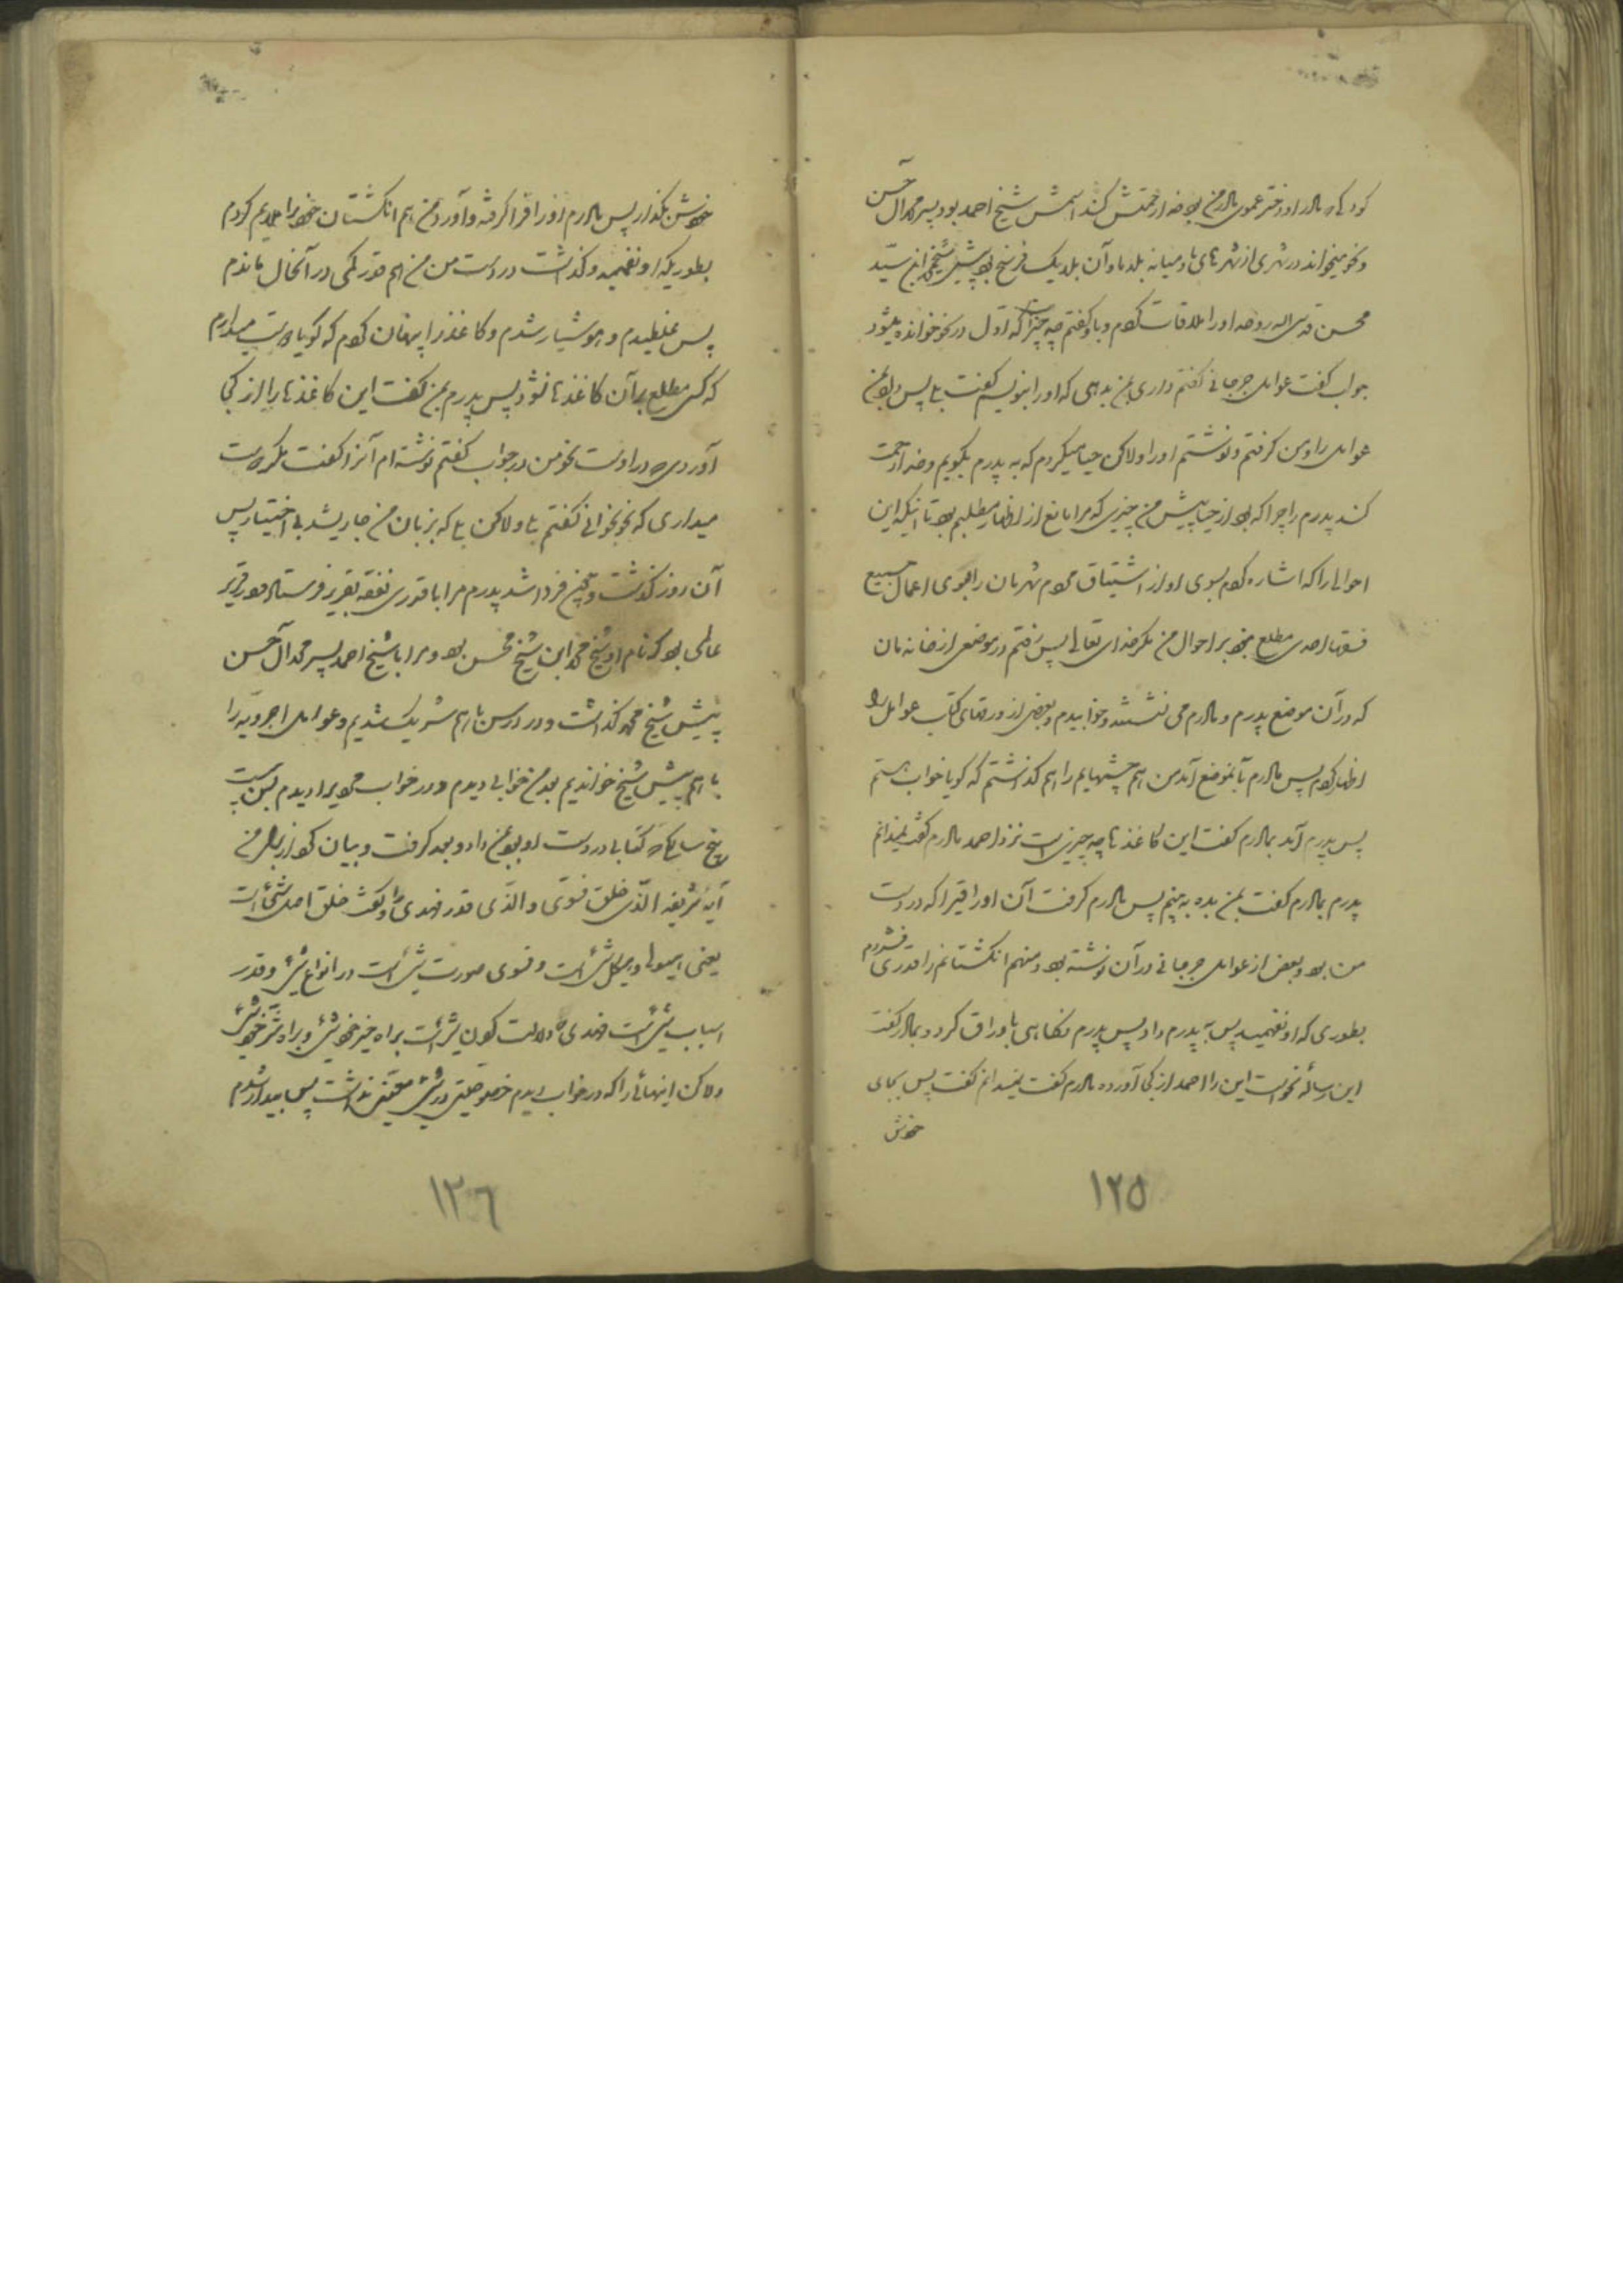 کودکی که مادر او دختر عموی مادر من بود خدا رحمتش کند اسمش شیخ احمد بود پسر محمد آل حسن
و نحو میخواند در شهری از شهرهای ما و میانه بلد ما و آن بلد یک فرسخ بود پیش شیخ محمد ابن سید
محسن قدس الله روحه او را ملاقات کردم و باو گفتم چه چیز است که اول در نحو خوانده میشود
جواب گفت عوامل جرجانی گفتم داری بمن بدهی که او را بنویسم گفت بلی پس داد بمن
عوامل را و من گرفتم و نوشتم او را ولاکن حیا میکردم که به پدرم بگویم و خدا رحمت
کند پدرم را چرا که بود از حیا پیش من چیزی که مرا مانع از اظهار مطلبم بود تا اینکه این
احوالی را که اشاره کردم بسوی او از اشتیاق کردم مهربان را بسوی اعمال جمیع
احدی مطلع نبود بر احوال من مگر خدای تعالی پس رفتم در موضعی از خانه مان
که در آن موضع پدرم و مادرم می نشستند و خوابیدم و بعضی از ورقهای کتاب عوامل را
اظهار کردم پس مادرم بآنموضع آمد من هم چشمهایم را هم گذاشتم که گویا خواب هستم
پس پدرم آمد بمادرم گفت این کاغذها چه چیز است نزد احمد مادرم گفت نمیدانم
پدرم بمادرم گفت بمن بده به بینم پس مادرم گرفت آن اوراقیرا که در دست
من بود و بعض از عوامل جرجانی در آن نوشته بود و منهم انگشتانم را قدری فشردم
بطوری که او نفهمید پس به پدرم داد پس پدرم نگاهی باوراق کرد و بمادر گفت
این رساله نحو است این را احمد از کجا آورده مادرم گفت نمیدانم گفت پس بجای
خودش
خودش بگذار پس مادرم اوراقرا گرفته و آورد من هم انگشتان خود را ملایم کردم
بطوریکه او نفهمید و گذاشت در دست من من هم قدر کمی در آنحال ماندم
پس غلطیدم و هوشیار شدم و کاغذ را پنهان کردم که گویا دوست میدارم
که کسی مطلع بر آن کاغذها نشود پس پدرم بمن گفت این کاغذها را از کجا
آوردی در او است نحو من در جواب گفتم نوشته ام آنرا گفت مگر دوست
میداری که نحو بخوانی گفتم بلی ولاکن بلی که بزبان من جاری شد بی اختیار پس
آن روز گذشت و چون فردا شد پدرم مرا با قدری نفقه بقریه فرستاد در قریه
عالمی بود که نام او شیخ محمد ابن شیخ محسن بود و مرا با شیخ احمد پسر محمد آل حسن
پیش شیخ محمد گذاشت و در درس با هم شریک شدیم و عوامل و اجرومیه را
با هم پیش شیخ خواندیم بعد من خوابی دیدم و در خواب مردی را دیدم بسن بیست
پنج ساله که کتابی در دست او بود بمن داد و بعد گرفت و بیان کرد از برای من
آیه شریفه الذی خلق فسوی و الذی قدر فهدی را و گفت خلق اصل شیء است
یعنی هیولا و هیکل شیء است و فسوی صورت شیء است در انواع شیء و قدر
اسباب شیء است فهدی دلالت کردن شیء است براه خیر خویش و براه شر خویش
ولاکن اینهائی را که در خواب دیدم خصوصیتی در شیء معینی نداشت پس بیدار شدم
١٢٥
١٢٦